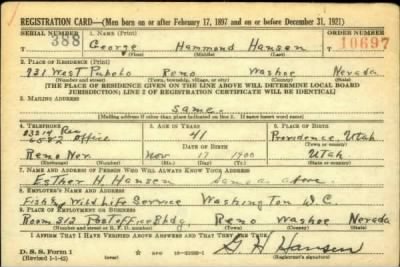 REGISTRATION CARD—(Men born on or after February 17, 1897 and on or before December 31, 1921)
SERIAL NUMBER 1. NAME (Print) ORDER NUMBER
388 George Hammond Hansen 10697
(First) (Middle) (Last)
2. PLACE OF RESIDENCE (Print)
931 West Reno Washoe Nevada
(Number and street) (Town, township, village, or city) (County) (State)
(THE PLACE OF RESIDENCE GIVEN ON THE LINE ABOVE WILL DETERMINE LOCAL BOARD
JURISDICTION; LINE 2 OF REGISTRATION CERTIFICATE WILL BE IDENTICAL)
3. MAILING ADDRESS
Same.
(Mailing address if other than place indicated on line 2. If same insert word same)
4. TELEPHONE 5. AGE IN YEARS 6. PLACE OF BIRTH
23214 Res
6582 Office 41 Providence, Utah
DATE OF BIRTH
Reno Nev. Nov 17 1900 Utah
(Mo.) (Day) (Yr.)
7. NAME AND ADDRESS OF PERSON WHO WILL ALWAYS KNOW YOUR ADDRESS
Esther H. Hansen Same as above
8. EMPLOYER'S NAME AND ADDRESS
Fish & Wild Life Service Washington D.C.
9. PLACE OF EMPLOYMENT OR BUSINESS
Room 312 Post office Bldg. Reno Washoe Nevada
(Number and street or R. F. D. number) (Town) (County) (State)
I AFFIRM THAT I HAVE VERIFIED ABOVE ANSWERS AND THAT THEY ARE TRUE.
D. S. S. Form 1
(Revised 1-1-42) (over) G H Hansen